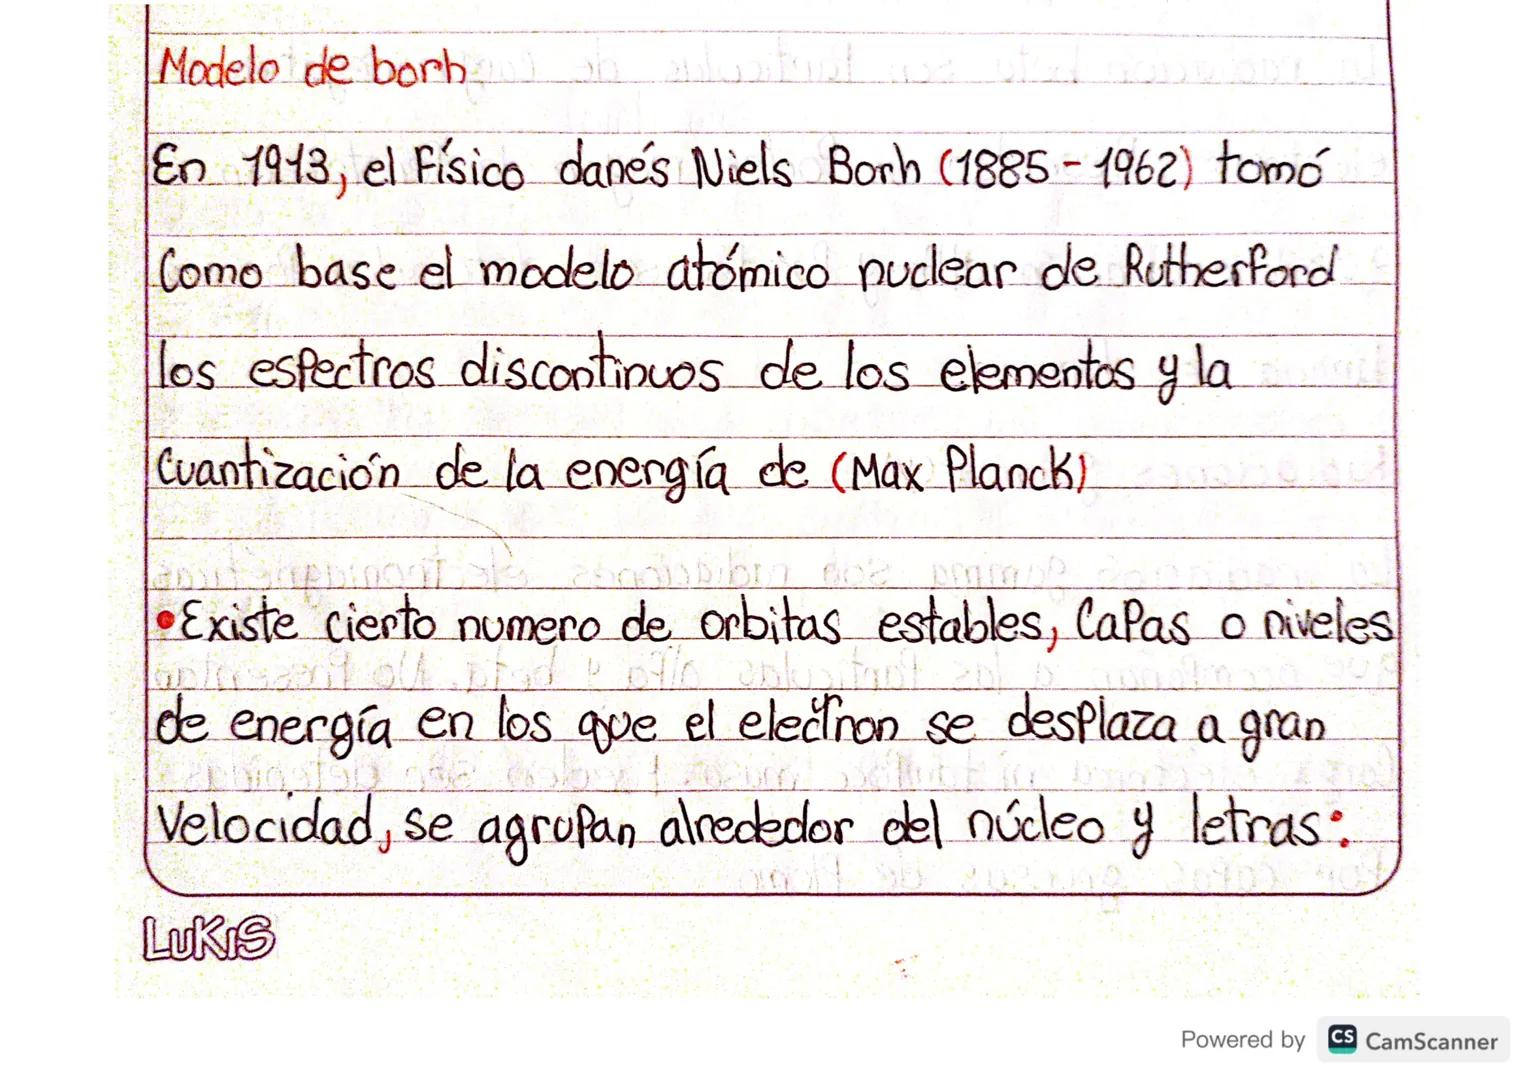 Modelo de borh
En 1913, el Físico danés Niels Borh (1885 - 1962) tomó
Como base el modelo atómico nuclear de Rutherford
los espectros discontinuos de los elementos y la
Cuantización de la energía de (Max Planck)
•Existe cierto numero de orbitas estables, Capas o niveles
de energía en los que el electron se desplaza a gran
Velocidad, se agrupan alrededor del núcleo y letras:.
LUKIS
Powered by CS CamScanner